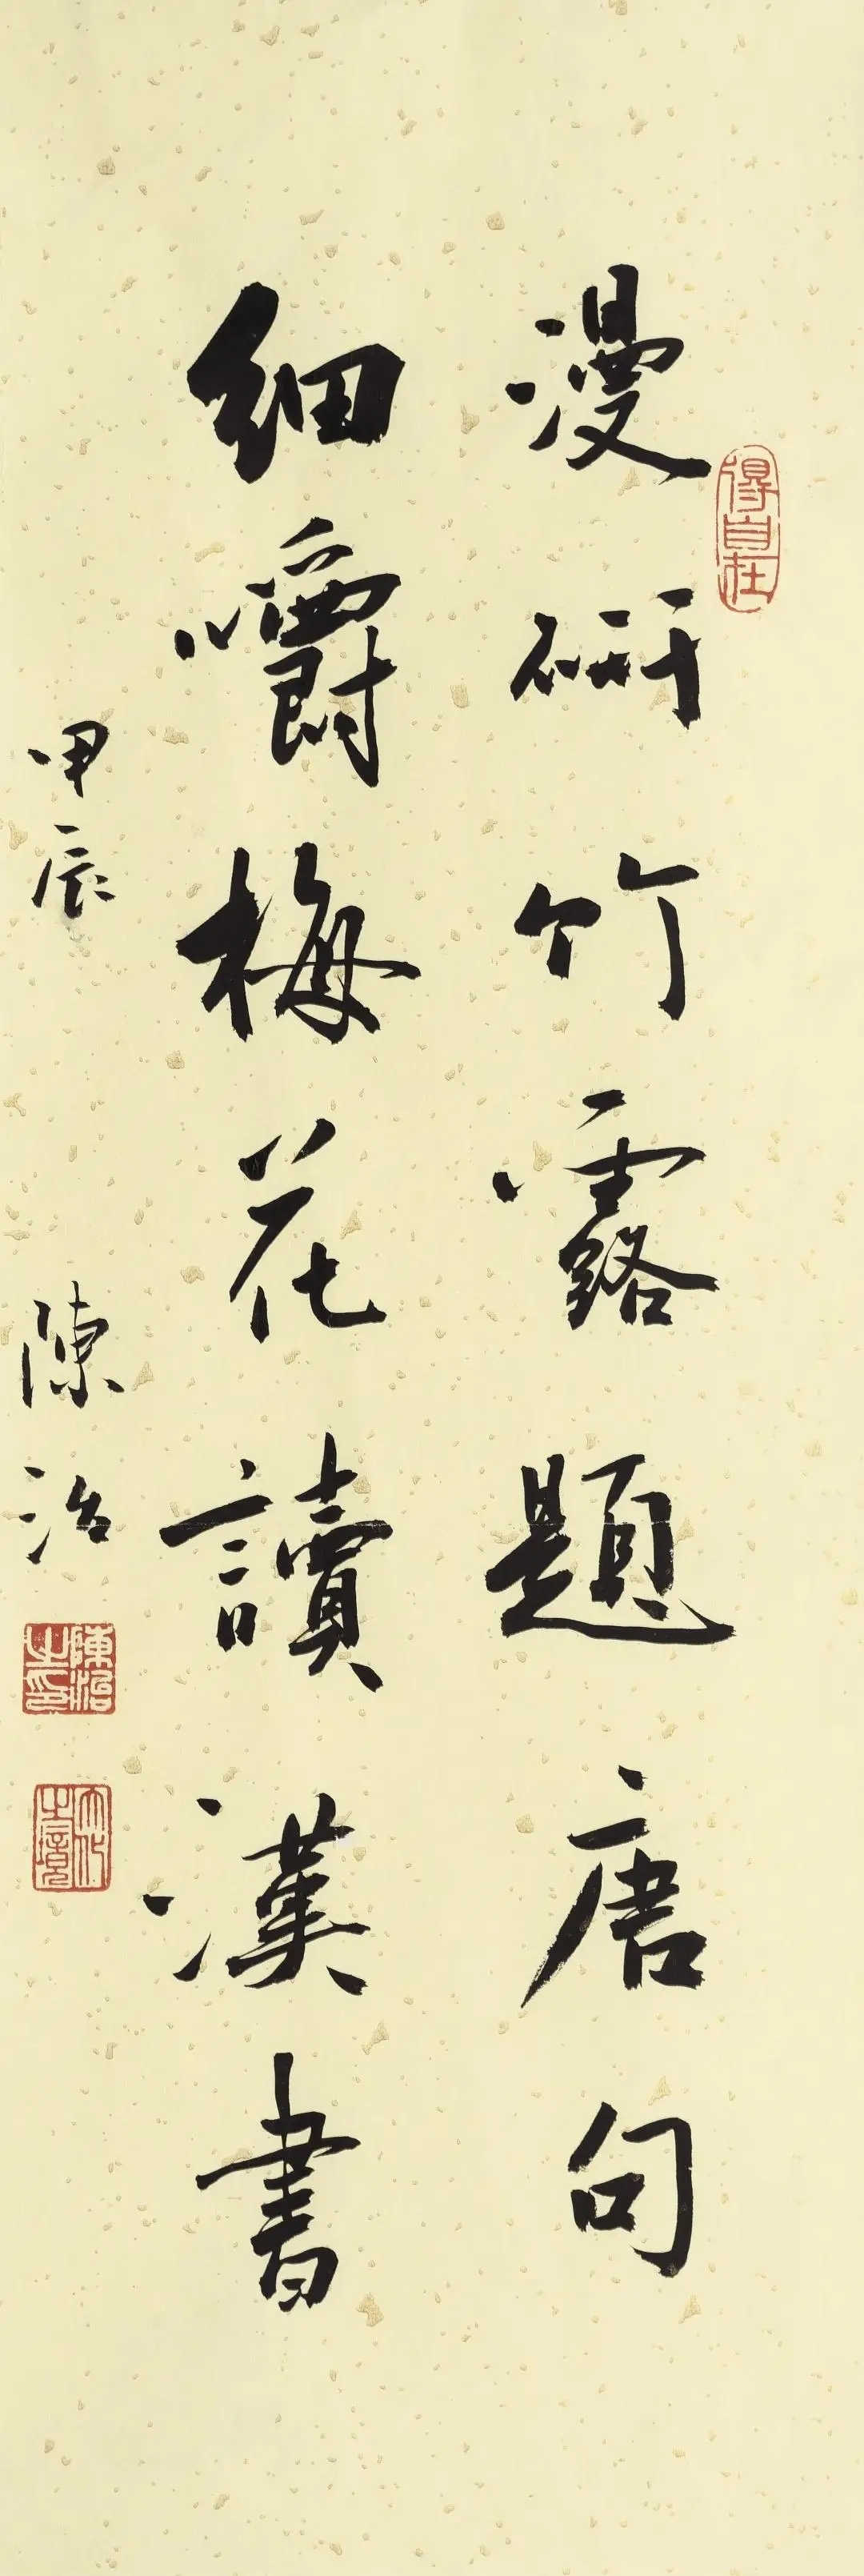 漫研竹露題唐句
細嚼梅花讀漢書
甲辰
陳治
得自在
陳治之印